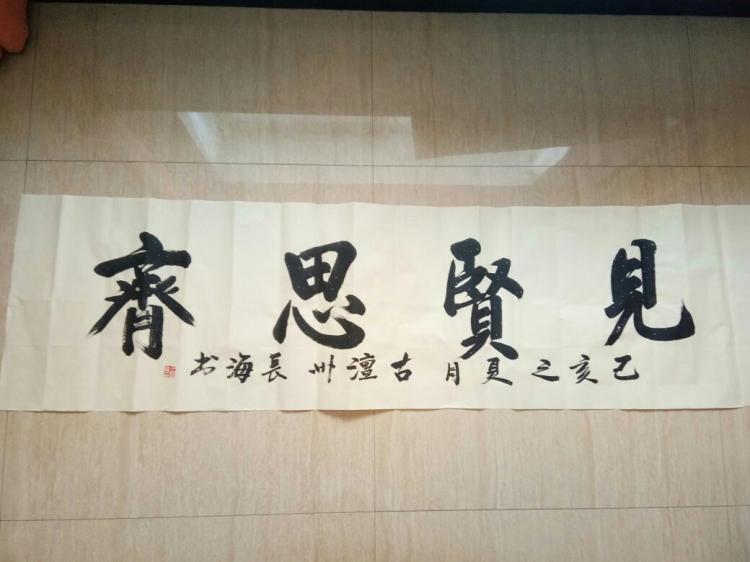 見賢思齊
己亥之夏月古澶州長海书